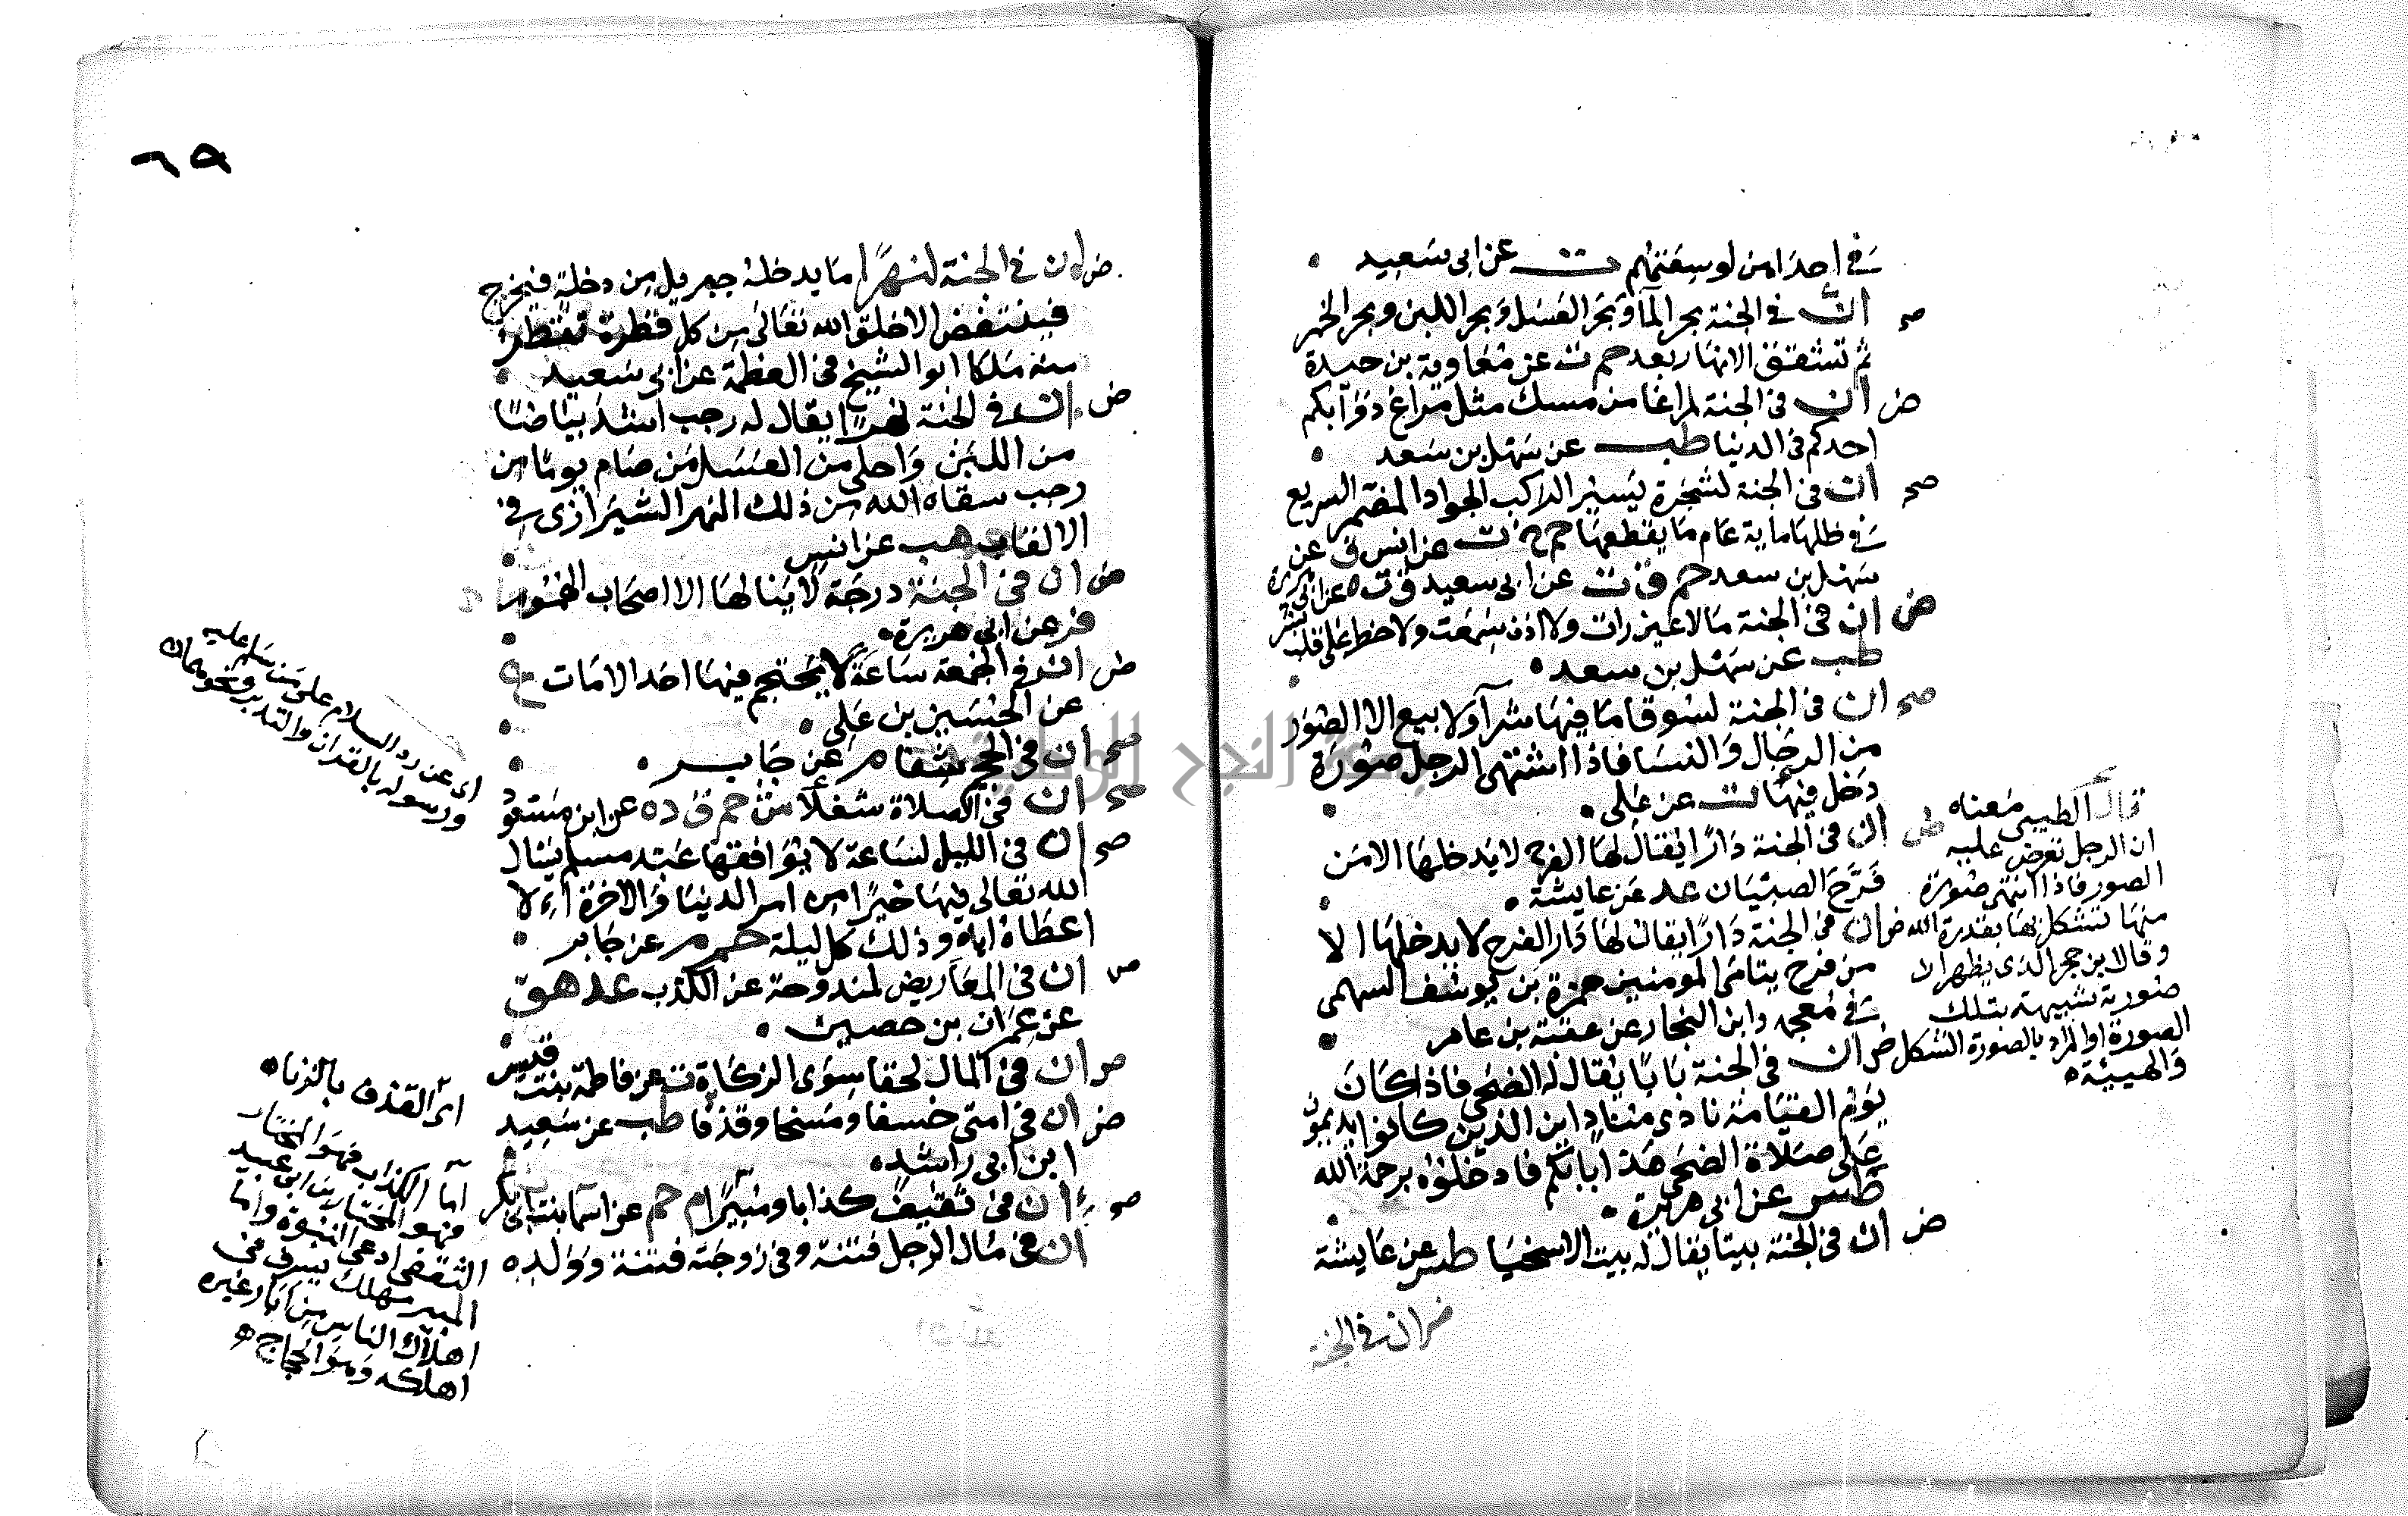 في احدا من لوسعتهم ت عن ابي سعيد
صح ان في الجنة بحر المآ وبحر العسل وبحر اللبن وبحر الخمر
ثم تشقق الانهار بعد حم ت عن معاوية بن حيدة
ض ان في الجنة لمراغا من مسك مثل مراغ دوآبكم
احدكم في الدنيا طب عن سهل بن سعد
صح ان في الجنة لشجرة يسير الراكب الجواد المضمر السريع
في ظلها ماية عام ما يقطعها حم خ ت عن انس ق عن
سهل بن سعد حم ق ت عن ابي سعيد ق ت ه عن ابي هريرة
ض ان في الجنة ما لا عين رات ولا اذن سمعت ولا خطر على قلب بشر
طب عن سهل بن سعد
صح ان في الجنة لسوقا ما فيها شرآ ولا بيع الا الصور
من الرجال والنسا فاذا اشتهى الرجل صورة
دخل فيها ت عن على
ض ان في الجنة دارا يقال لها الفرح لا يدخلها الا من
فرح الصبيان عد عن عايشة
ض ان في الجنة دارا يقال لها دار الفرح لا يدخلها الا
من فرح يتامى المومنين حمزة بن يوسف السهمى
في معجمه وابن النجار عن عقبة بن عامر
ض ان في الجنة بابا يقال له الضحى فاذا كان
يوم القيامة نادى مناد اين الذين كانوا يديمون
على صلاة الضحى هذا بابكم فادخلوه برحمة الله
طس عن ابي هريرة
ض ان في الجنة بيتا يقال له بيت الاسخيا طس عن عايشة
ض ان في الجنة
قال الطيبي معناه
ان الرجل تعرض عليه
الصور فاذا اشتهى صورة
منها تتشكل بها بقدرة الله
وقال ابن حجر الذى يظهر ان
صورته شبيهة بتلك
الصورة او المراد بالصورة الشكل
والهيئة
٦٩
ض ان في الجنة لنهرا ما يدخله جبريل من دخلة فيخرج
فينتفض الا خلق الله تعالى من كل قطرة تقطر
منه ملكا ابو الشيخ في العظمة عن ابي سعيد
ض ان في الجنة نهرا يقال له رجب اشد بياضا
من اللبن واحلى من العسل من صام يوما من
رجب سقاه الله من ذلك النهر الشيرازى في
الالقاب هب عن انس
ض ان في الجنة درجة لا ينالها الا اصحاب الهموم
فر عن ابي هريرة
ض ان في الجمعة ساعة لا يحتجم فيها احد الا مات ع
عن الحسين بن على
صح ان في الحجم شفا م عن جابر
صح ان في الصلاة شغلا ش حم ق د ه عن ابن مسعود
صح ان في الليل لساعة لا يوافقها عبد مسلم يسال
الله تعالى فيها خيرا من امر الدنيا والاخرة الا
اعطاه اياه وذلك كل ليلة حم م عن جابر
ض ان في المعاريض لمندوحة عن الكذب عد هق
عن عمران بن حصين
ض ان في المال لحقا سوى الزكاة ت عن فاطمة بنت قيس
ض ان في امتى خسفا ومسخا وقذفا طب عن سعيد
ابن ابي راشد
صح ان في ثقيف كذابا ومبيرا م حم عن اسما بنت ابي بكر
ان في مال الرجل فتنة وفي زوجته فتنة وولده
اى عن رد السلام على من سلم عليه
ورسوله بالقران والتدبر ونحو هما
اى القذف بالزنا
اما الكذاب فهو المختار
فهو المختار بن ابي عبيد
الثقفى ادعى النبوة واما
المبير مهلك يسرف في
اهلاك الناس من ابار غيره
اهلكه وهو الحجاج